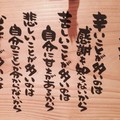 辛いことが多いのは
感謝を知らないから
苦しいことが多いのは
自分に甘えがあるから
悲しいことが多いのは
自分のことしか